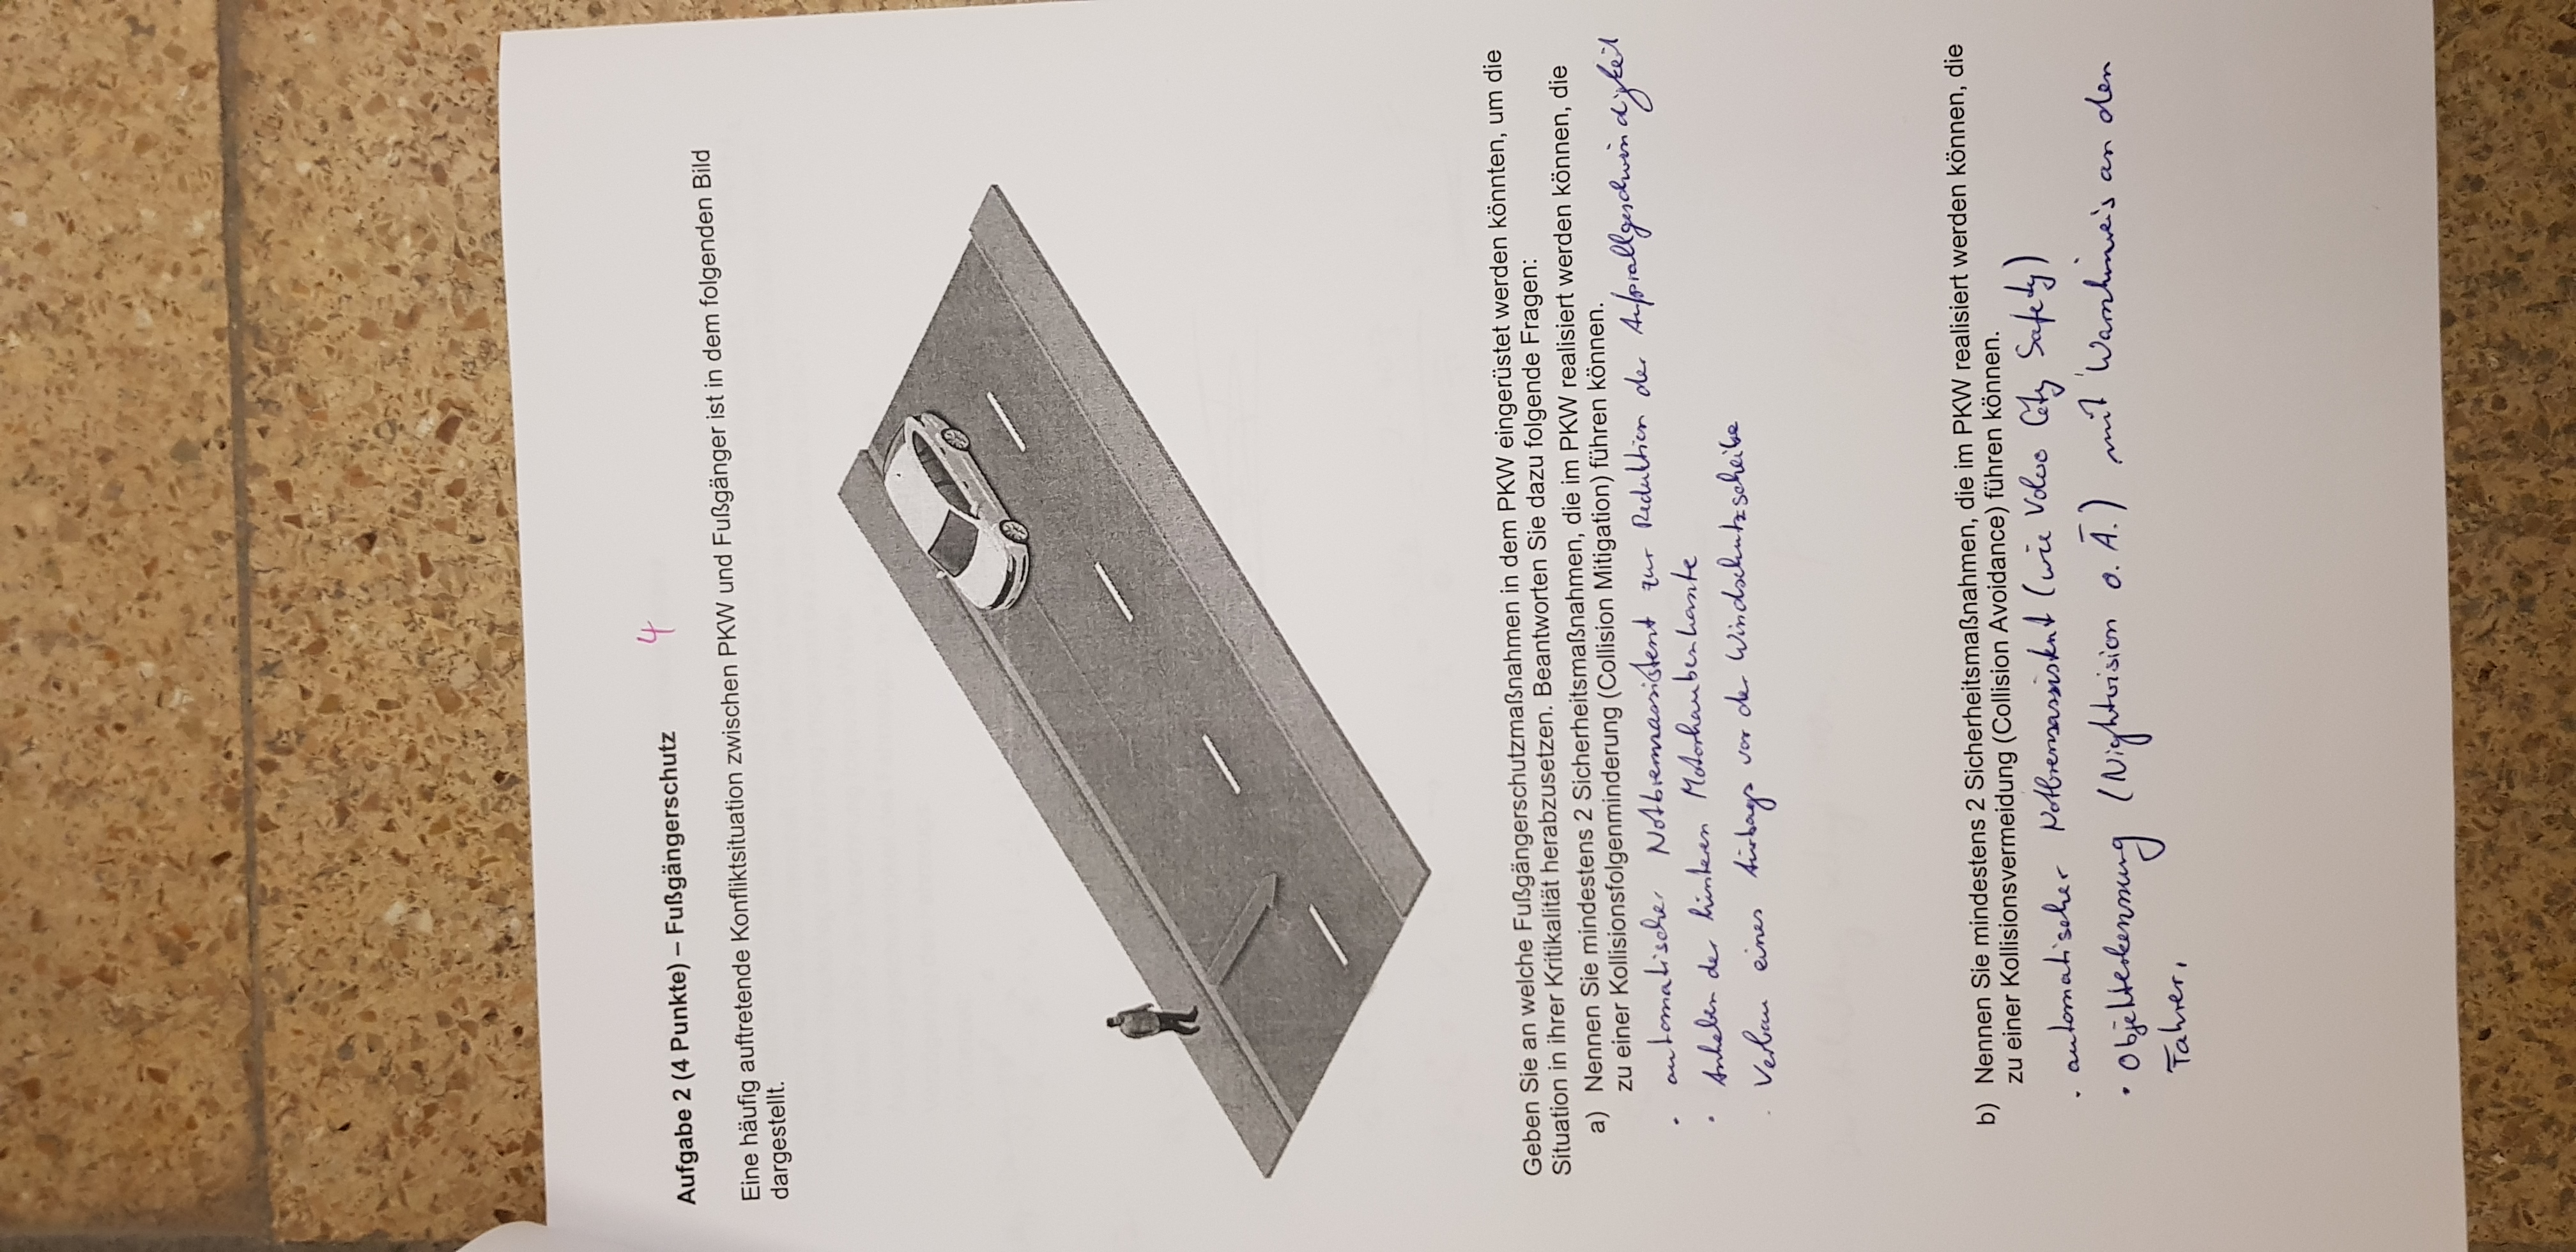 Aufgabe 2 (4 Punkte) – Fußgängerschutz 4
Eine häufig auftretende Konfliktsituation zwischen PKW und Fußgänger ist in dem folgenden Bild
dargestellt.
Geben Sie an welche Fußgängerschutzmaßnahmen in dem PKW eingerüstet werden könnten, um die
Situation in ihrer Kritikalität herabzusetzen. Beantworten Sie dazu folgende Fragen:
a) Nennen Sie mindestens 2 Sicherheitsmaßnahmen, die im PKW realisiert werden können, die
zu einer Kollisionsfolgenminderung (Collision Mitigation) führen können.
· automatischer Notbremsassistent zur Reduktion der Aufprallgeschwindigkeit
· Anheben der hinteren Motorhaubenkante
· Verbau eines Airbags vor der Windschutzscheibe
b) Nennen Sie mindestens 2 Sicherheitsmaßnahmen, die im PKW realisiert werden können, die
zu einer Kollisionsvermeidung (Collision Avoidance) führen können.
· automatischer Notbremsassistent (wie Volvo City Safety)
· Objekterkennung (Nightvision o. Ä.) mit Warnhinweis an den
Fahrer.